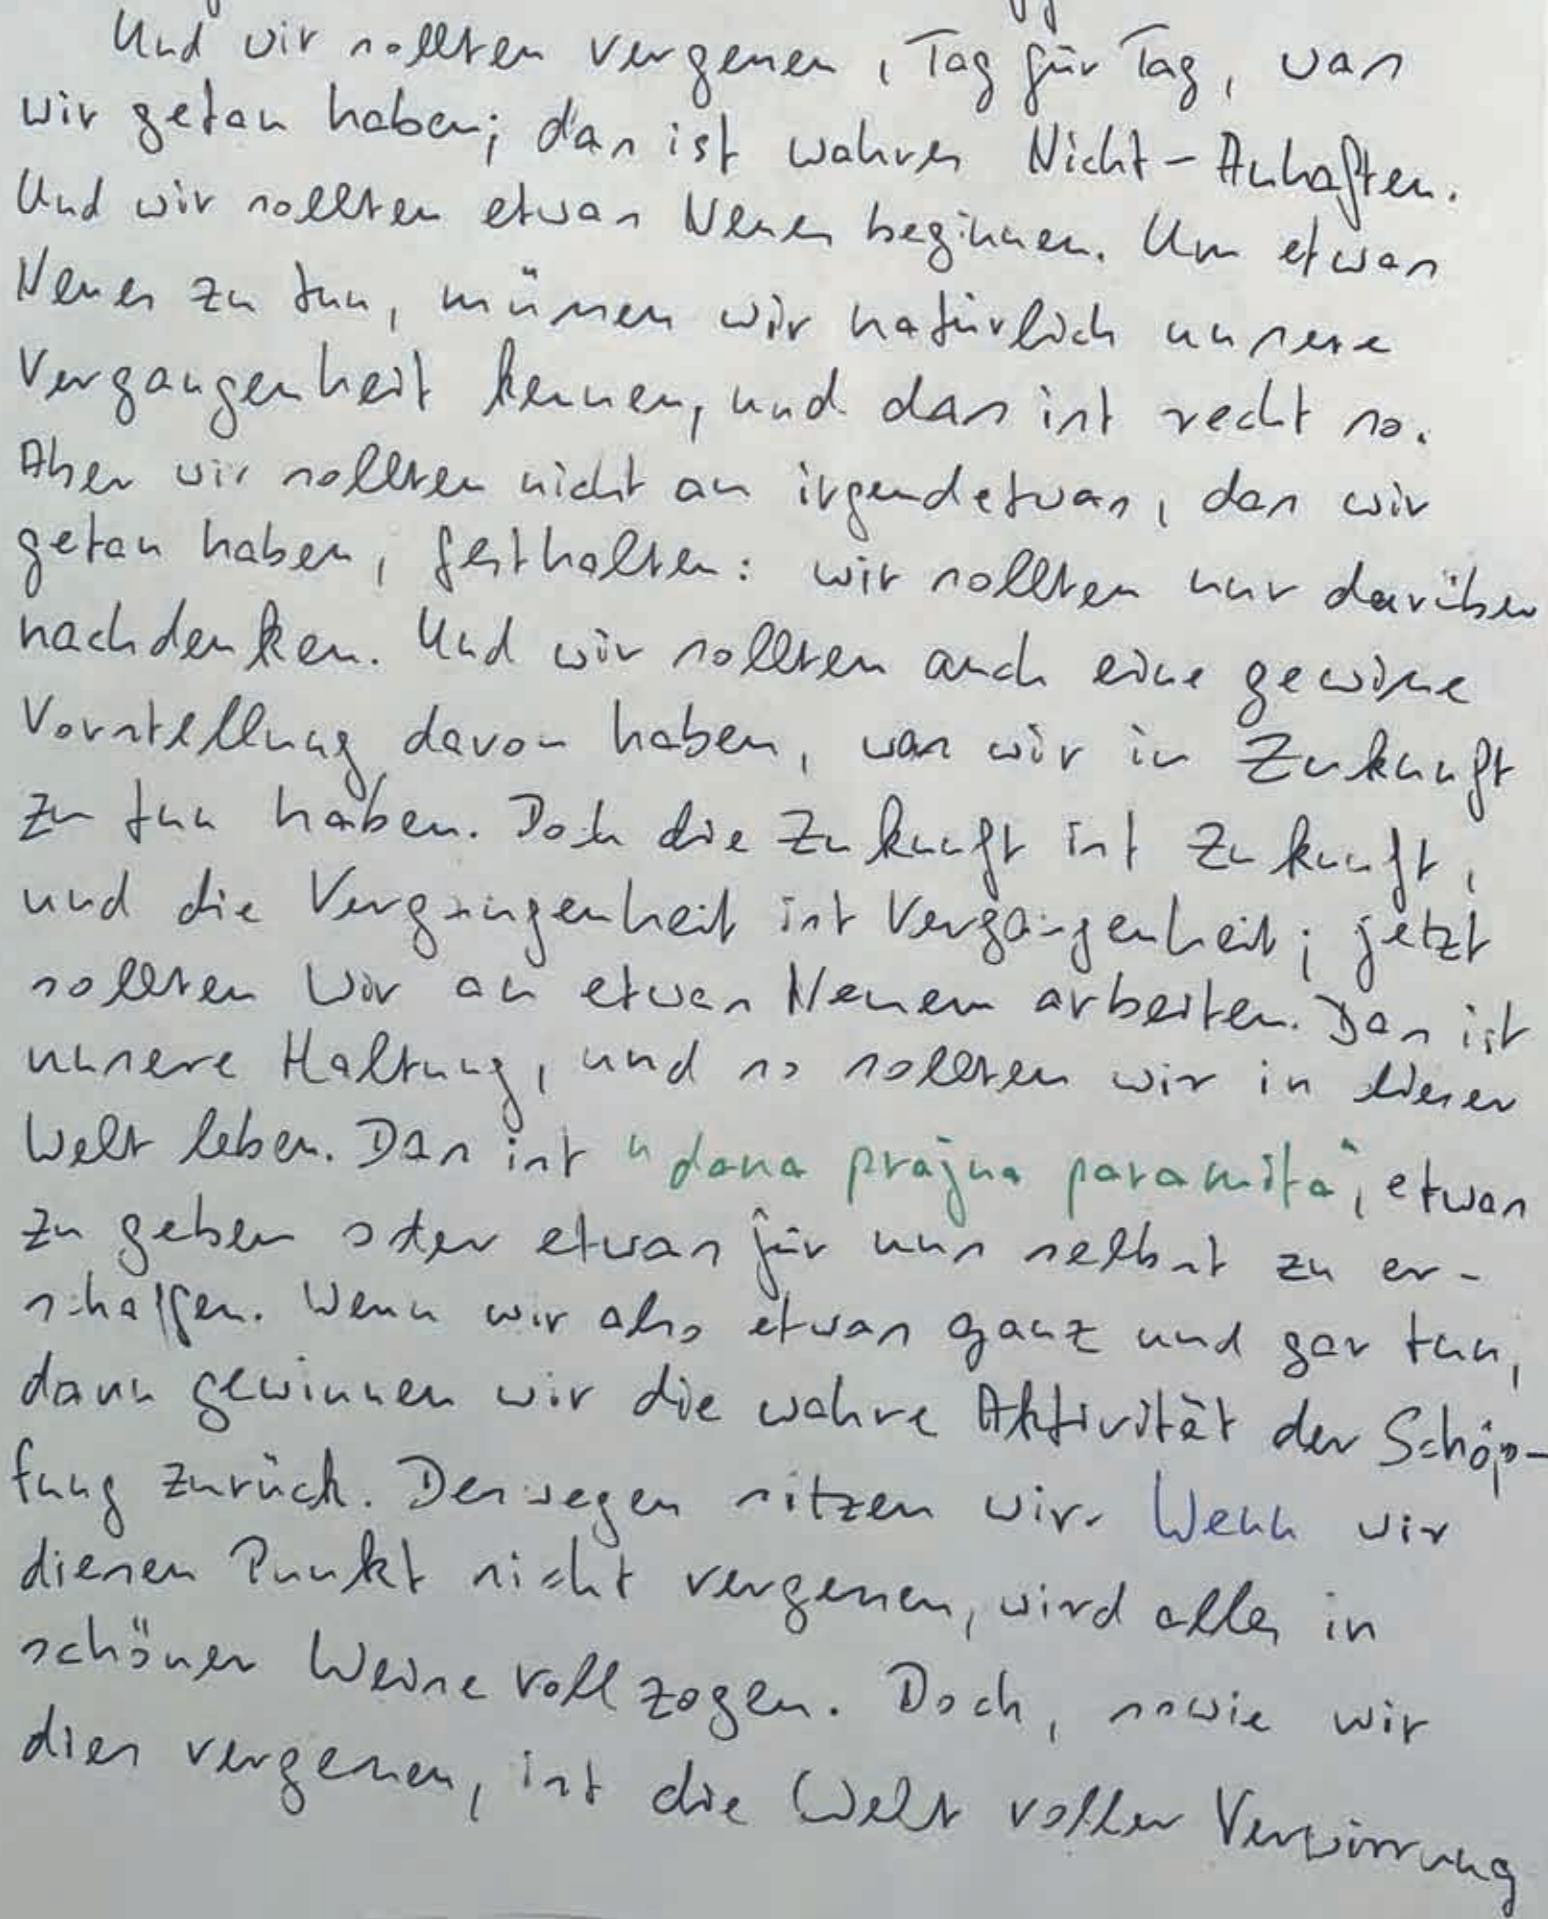 Und wir sollten vergessen, Tag für Tag, was
wir getan haben; das ist wahres Nicht-Anhaften.
Und wir sollten etwas Neues beginnen. Um etwas
Neues zu tun, müssen wir natürlich unsere
Vergangenheit kennen, und das ist recht so.
Aber wir sollten nicht an irgendetwas, das wir
getan haben, festhalten: wir sollten nur darüber
nachdenken. Und wir sollten auch eine gewisse
Vorstellung davon haben, was wir in Zukunft
zu tun haben. Doch die Zukunft ist Zukunft,
und die Vergangenheit ist Vergangenheit; jetzt
sollten wir an etwas Neuem arbeiten. Das ist
unsere Haltung, und so sollten wir in dieser
Welt leben. Das ist "dana prajna paramita", etwas
zu geben oder etwas für uns selbst zu er-
schaffen. Wenn wir also etwas ganz und gar tun,
dann gewinnen wir die wahre Aktivität der Schöp-
fung zurück. Deswegen sitzen wir. Wenn wir
diesen Punkt nicht vergessen, wird alles in
schöner Weise vollzogen. Doch, sowie wir
dies vergessen, ist die Welt voller Verwirrung